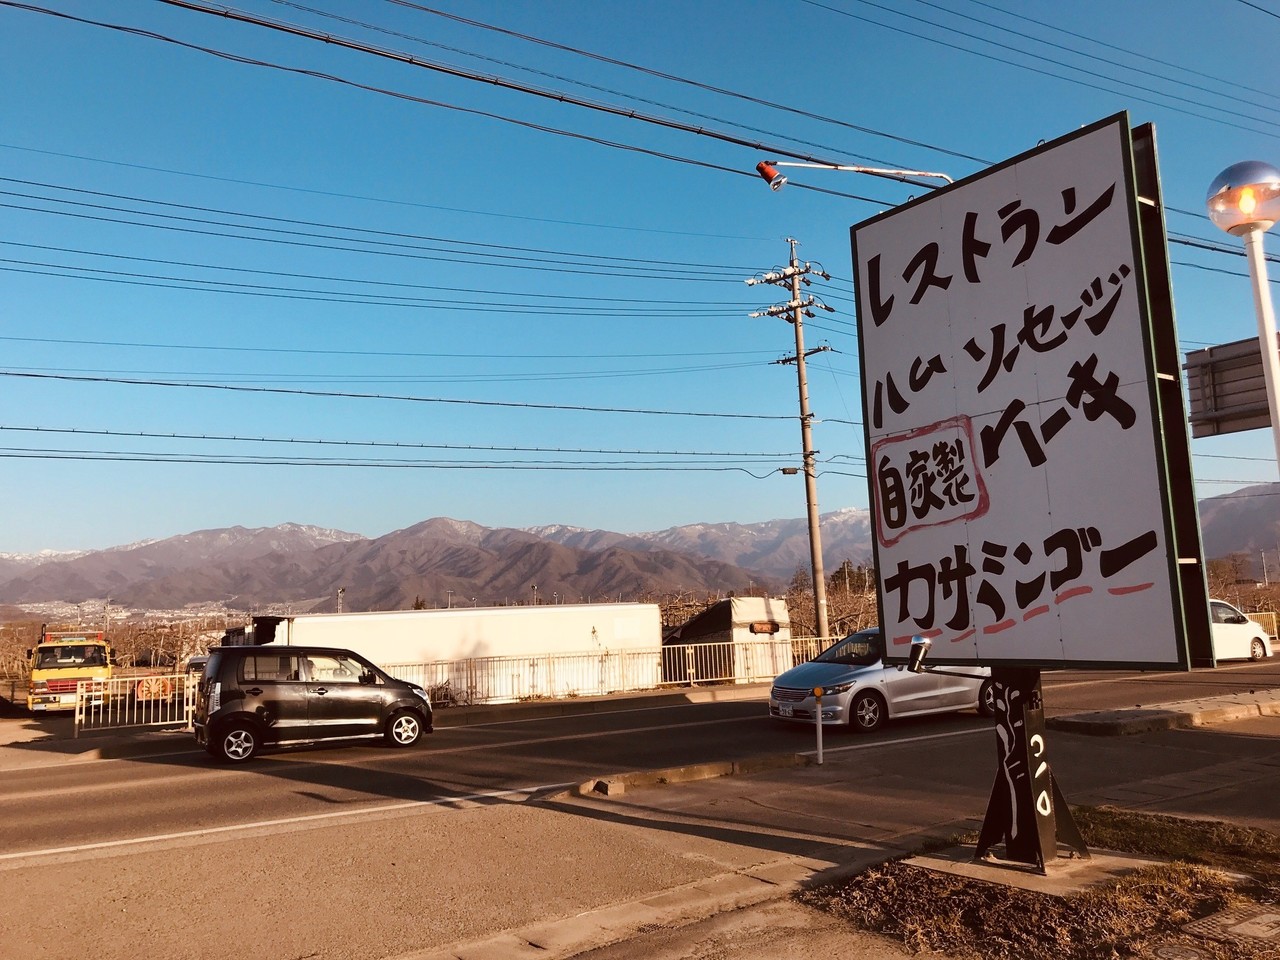 レストラン
ハム ソーセージ
自家製 ベーキ
カサミンゴー